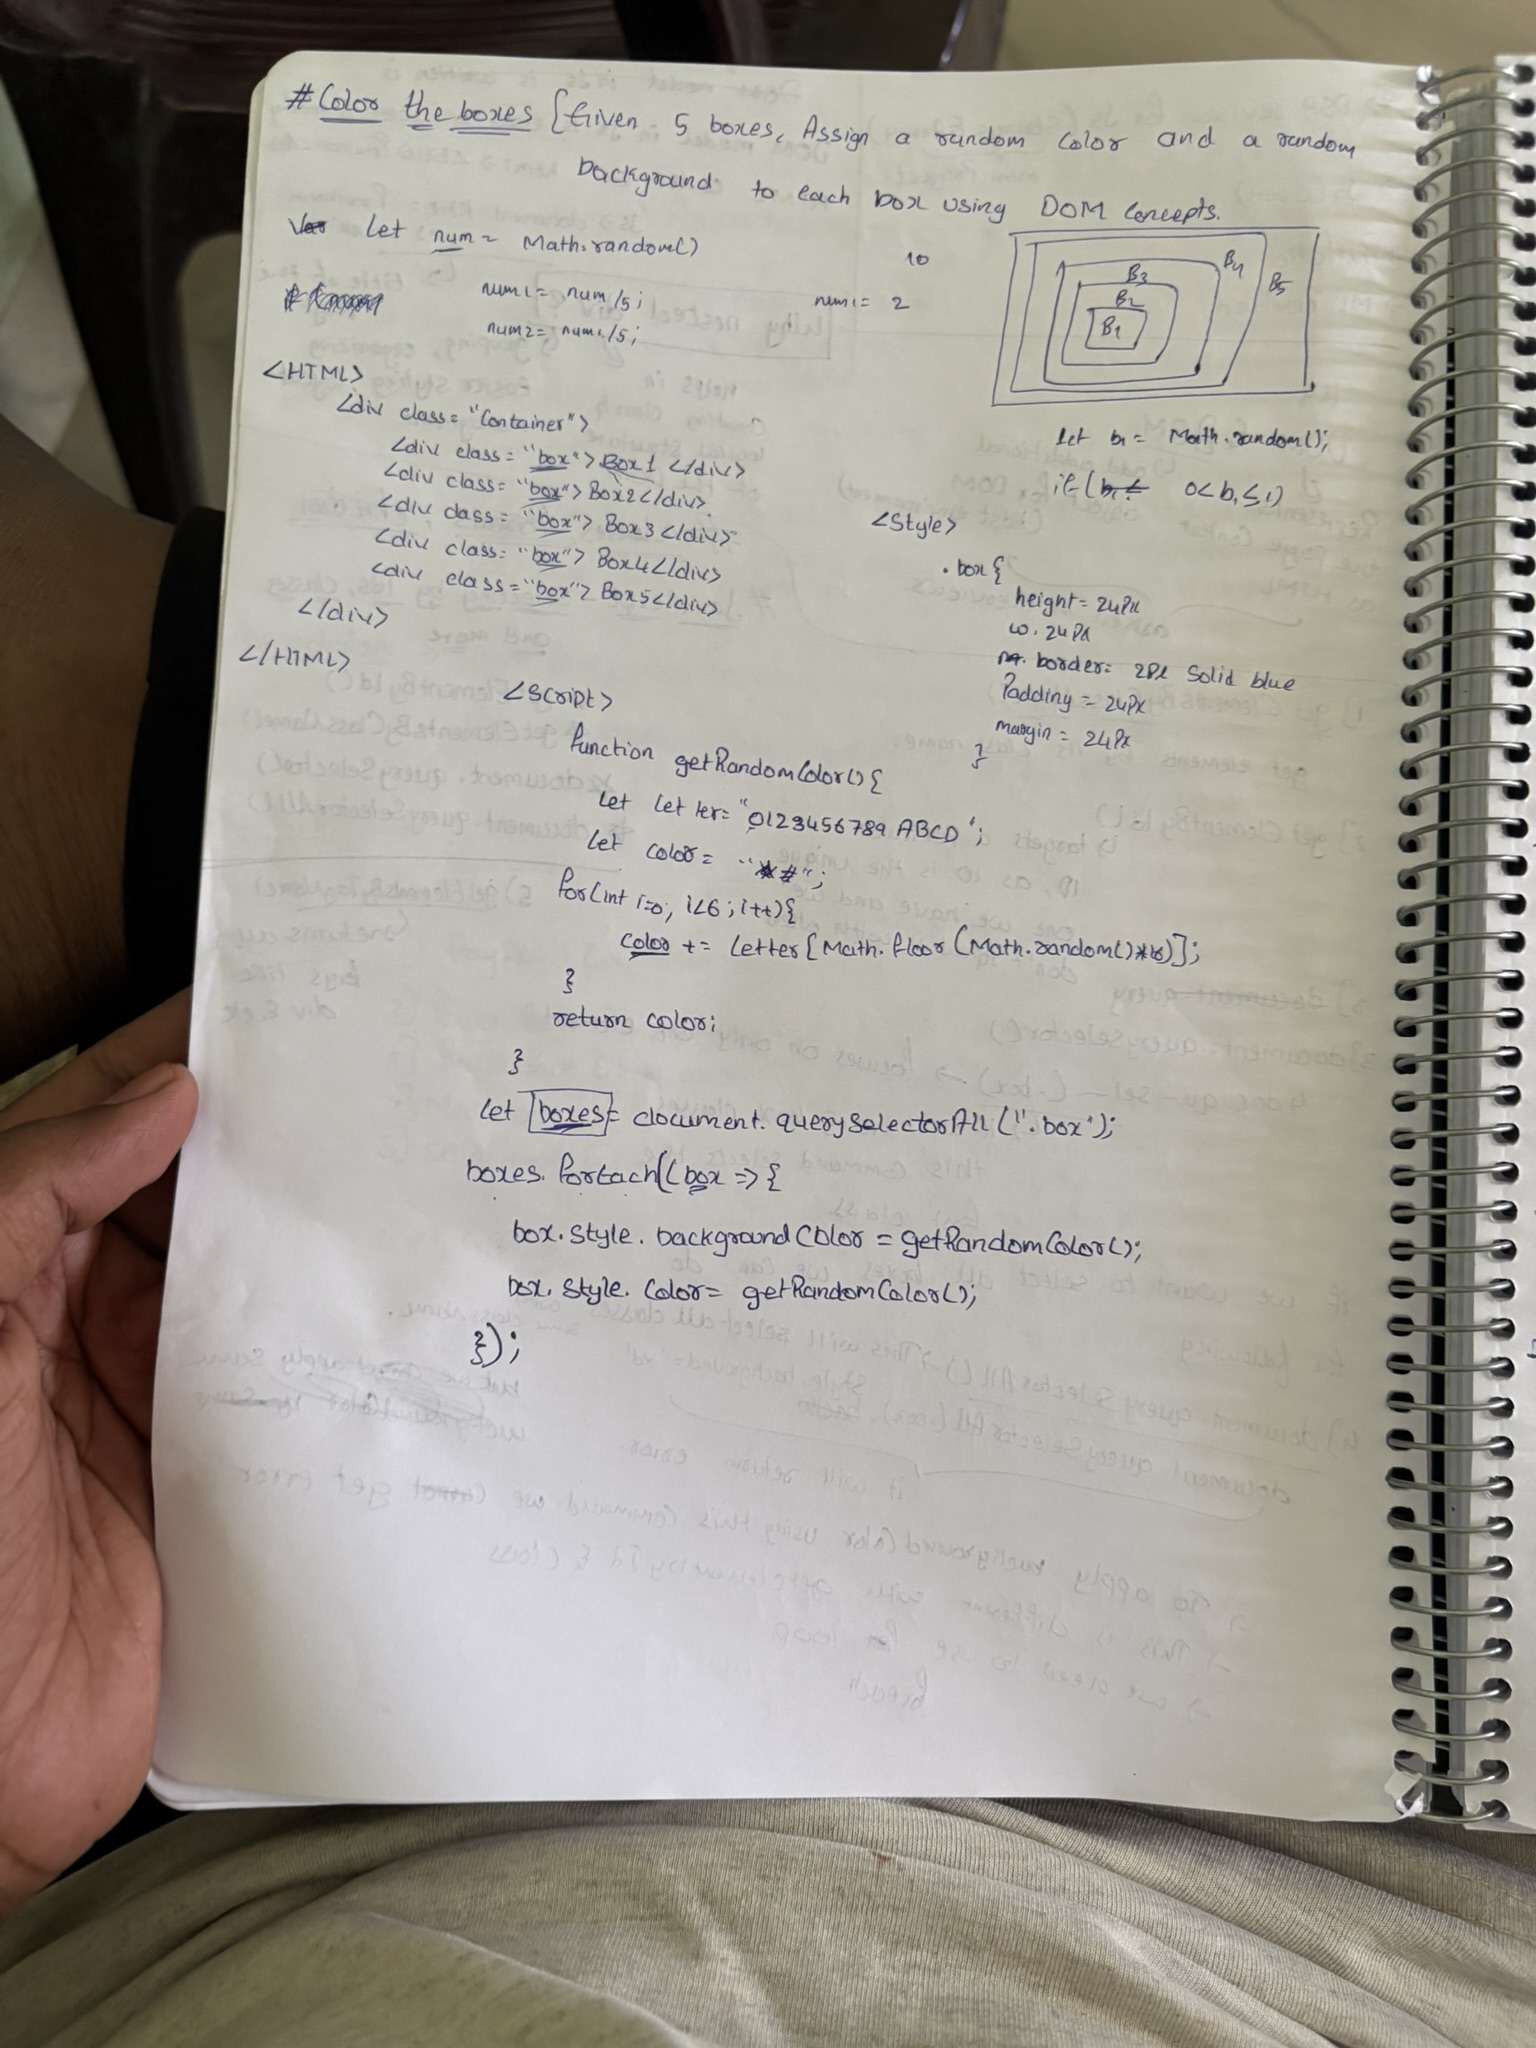 # Color the boxes {Given 5 boxes, Assign a random color and a random
background to each box using DOM Concepts.
Var Let num = Math.random()
num1 = num/5;
num2 = num1/5;
10
num1 = 2
B1
B2
B3
B4
B5
Let b1 = Math.random();
if( 0<b1≤1)
<HTML>
<div class="Container">
<div class="box">Box1 </div>
<div class="box">Box2</div>
<div class="box">Box3 </div>
<div class="box">Box4</div>
<div class="box">Box5</div>
</div>
</HTML>
<Style>
.box{
height= 24Px
w. 24Px
border= 2Px Solid blue
Padding = 24Px
margin = 24Px
}
<Script>
function getRandomColor(){
Let letter= "0123456789ABCD";
Let color = "#";
for(int i=0; i<6; i++){
color += letter[Math.floor(Math.random()*16)];
}
return color;
}
Let boxes = document.querySelectorAll(".box");
boxes.forEach((box => {
box.style.backgroundColor = getRandomColor();
box.style.color= getRandomColor();
});